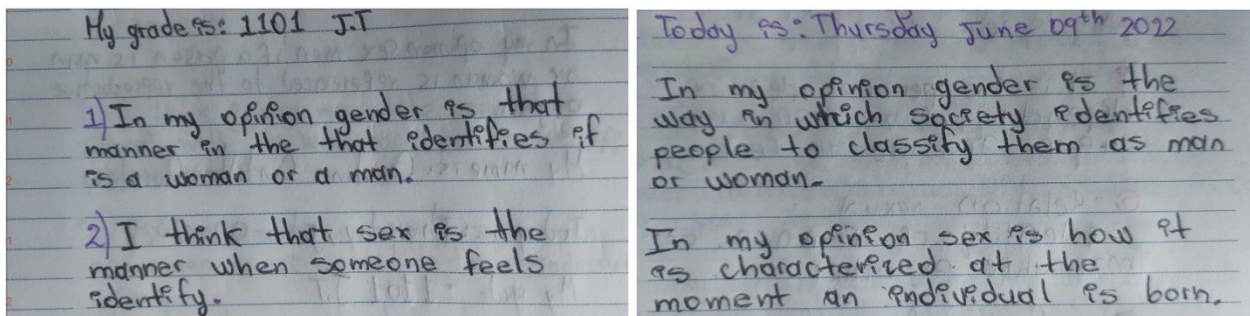 My grade is: 1101 J.T
1) In my opinion gender is that
manner in the that identifies if
is a woman or a man.
2) I think that sex is the
manner when someone feels
identify.
Today is: Thursday June 09th 2022
In my opinion gender is the
way in which society identifies
people to classify them as man
or woman.
In my opinion sex is how it
is characterized at the
moment an individual is born.